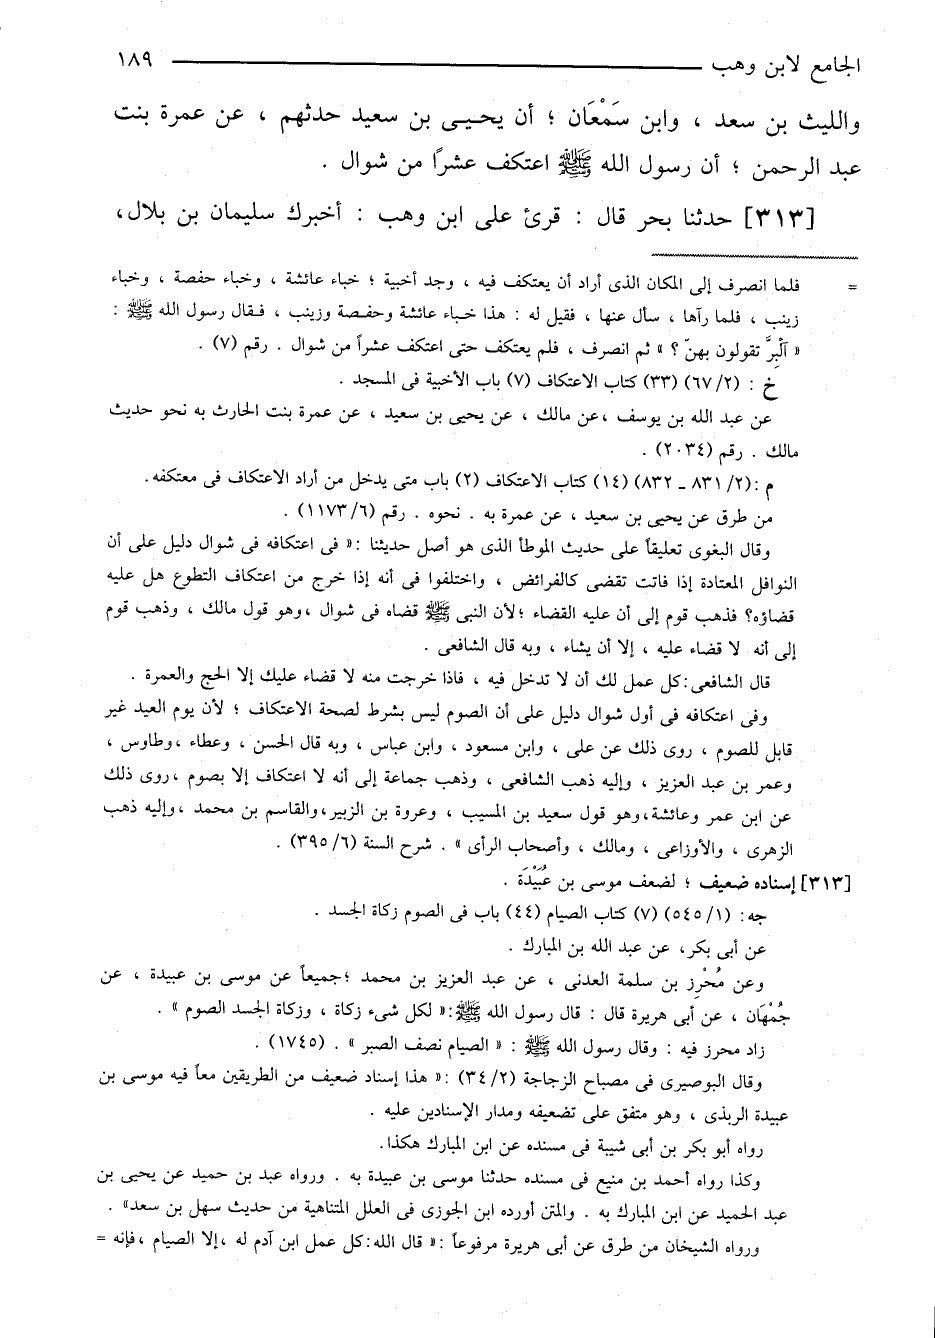 الجامع لابن وهب ١٨٩
والليث بن سعد ، وابن سَمْعَان ؛ أن يحيى بن سعيد حدثهم ، عن عمرة بنت
عبد الرحمن ؛ أن رسول الله ﷺ اعتكف عشرًا من شوال .
[٣١٣] حدثنا بحر قال : قرئ على ابن وهب : أخبرك سليمان بن بلال،
= فلما انصرف إلى المكان الذى أراد أن يعتكف فيه ، وجد أخبية ؛ خباء عائشة ، وخباء حفصة ، وخباء
زينب ، فلما رآها ، سأل عنها ، فقيل له : هذا خباء عائشة وحفصة وزينب ، فقال رسول الله ﷺ :
« آلْبِرَّ تقولون بهنّ ؟ » ثم انصرف ، فلم يعتكف حتى اعتكف عشراً من شوال . رقم (٧) .
خ : (٢/ ٦٧) (٣٣) كتاب الاعتكاف (٧) باب الأخبية فى المسجد .
عن عبد الله بن يوسف ،عن مالك ، عن يحيى بن سعيد ، عن عمرة بنت الحارث به نحو حديث
مالك . رقم (٢٠٣٤) .
م :(٢/ ٨٣١ ـ ٨٣٢) (١٤) كتاب الاعتكاف (٢) باب متى يدخل من أراد الاعتكاف فى معتكفه.
من طرق عن يحيى بن سعيد ، عن عمرة به . نحوه . رقم (٦/ ١١٧٣) .
وقال البغوى تعليقاً على حديث الموطأ الذى هو أصل حديثنا :« فى اعتكافه فى شوال دليل على أن
النوافل المعتادة إذا فاتت تقضى كالفرائض ، واختلفوا فى أنه إذا خرج من اعتكاف التطوع هل عليه
قضاؤه؟ فذهب قوم إلى أن عليه القضاء ؛لأن النبى ﷺ قضاه فى شوال ،وهو قول مالك ، وذهب قوم
إلى أنه لا قضاء عليه ، إلا أن يشاء ، وبه قال الشافعى .
قال الشافعى:كل عمل لك أن لا تدخل فيه ، فاذا خرجت منه لا قضاء عليك إلا الحج والعمرة .
وفى اعتكافه فى أول شوال دليل على أن الصوم ليس بشرط لصحة الاعتكاف ؛ لأن يوم العيد غير
قابل للصوم ، روى ذلك عن على ، وابن مسعود ، وابن عباس ، وبه قال الحسن ، وعطاء ،وطاوس ،
وعمر بن عبد العزيز ، وإليه ذهب الشافعى ، وذهب جماعة إلى أنه لا اعتكاف إلا بصوم ،روى ذلك
عن ابن عمر وعائشة،وهو قول سعيد بن المسيب ، وعروة بن الزبير،والقاسم بن محمد ،وإليه ذهب
الزهرى ، والأوزاعى ، ومالك ، وأصحاب الرأى » . شرح السنة (٦/ ٣٩٥) .
[٣١٣] إسناده ضعيف ؛ لضعف موسى بن عُبَيْدَة .
جه: (١/ ٥٤٥) (٧) كتاب الصيام (٤٤) باب فى الصوم زكاة الجسد .
عن أبى بكر، عن عبد الله بن المبارك .
وعن مُحْرِز بن سلمة العدنى ، عن عبد العزيز بن محمد ؛جميعاً عن موسى بن عبيدة ، عن
جُمْهَان ، عن أبى هريرة قال : قال رسول الله ﷺ:« لكل شىء زكاة ، وزكاة الجسد الصوم » .
زاد محرز فيه : وقال رسول الله ﷺ : « الصيام نصف الصبر » . (١٧٤٥) .
وقال البوصيرى فى مصباح الزجاجة (٢/ ٣٤) :« هذا إسناد ضعيف من الطريقين معاً فيه موسى بن
عبيدة الربذى ، وهو متفق على تضعيفه ومدار الإسنادين عليه .
رواه أبو بكر بن أبى شيبة فى مسنده عن ابن المبارك هكذا.
وكذا رواه أحمد بن منيع فى مسنده حدثنا موسى بن عبيدة به . ورواه عبد بن حميد عن يحيى بن
عبد الحميد عن ابن المبارك به . والمتن أورده ابن الجوزى فى العلل المتناهية من حديث سهل بن سعد» .
ورواه الشيخان من طرق عن أبى هريرة مرفوعاً :« قال الله:كل عمل ابن آدم له ،إلا الصيام ،فإنه =